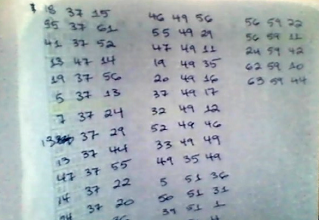 8 37 15
55 37 61
41 37 52
13 47 14
19 37 56
5 37 13
7 37 24
37 29
13 37 44
47 37 55
14 37 22
37 20
46 49 56
55 49 29
47 49 11
19 49 35
20 49 16
37 49 17
32 49 12
52 49 46
33 49 49
49 35 49
5 51 36
50 51 31
39 51 1
56 59 22
56 59 11
24 59 42
62 59 10
63 59 44